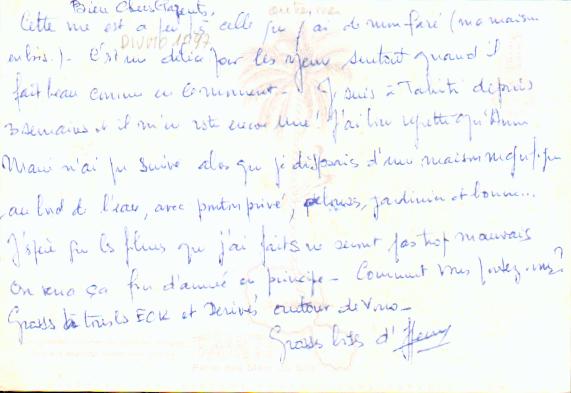 Bien Chers Parents,
Cette vue est à peu près celle que j'ai de mon faré (ma maison
en bois.) - C'est un délice pour les yeux surtout quand il
fait beau comme en ce moment - Je suis à Tahiti depuis
3 semaines et il m'en reste encore une! J'ai bien regretté qu'Anne
Marie n'ai pu suivre alors que je disposais d'une maison magnifique
au bord de l'eau, avec ponton privé, pelouses, jardinier et bonne...
J'espère que les films que j'ai faits ne seront pas trop mauvais
On verra ça fin d'année en principe - Comment vous portez-vous?
Grosses à tous les ECK et Dérivés autour de vous -
Grosses bises d'